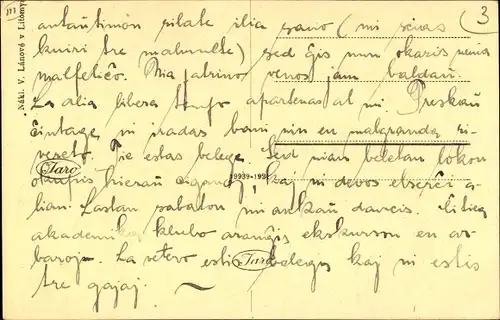 III
3
antaŭtimon rilate ilia savo (mi scias
kuiri tre malmulte) sed ĝis nun okazis neniu
malfeliĉo. Mia fatrino venos jam baldaŭ.
La alia libera tempo apartenas al mi. Preskaŭ
ĉiutage ni iradas bani nin en malgranda ri-
vereto. Tie estas belege. Sed nian beletan lokon
okupis hieraŭ ciganoj, kaj ni devos elserĉi a-
lian. Lastan sabaton mi ankaŭ dancis.
akademia klubo aranĝis ekskurson en ar-
baroj. La vetero estis belega kaj ni estis
tre gajaj.
Taro
Taro
Nákl. V. Lánové v Litomyš
19939-193